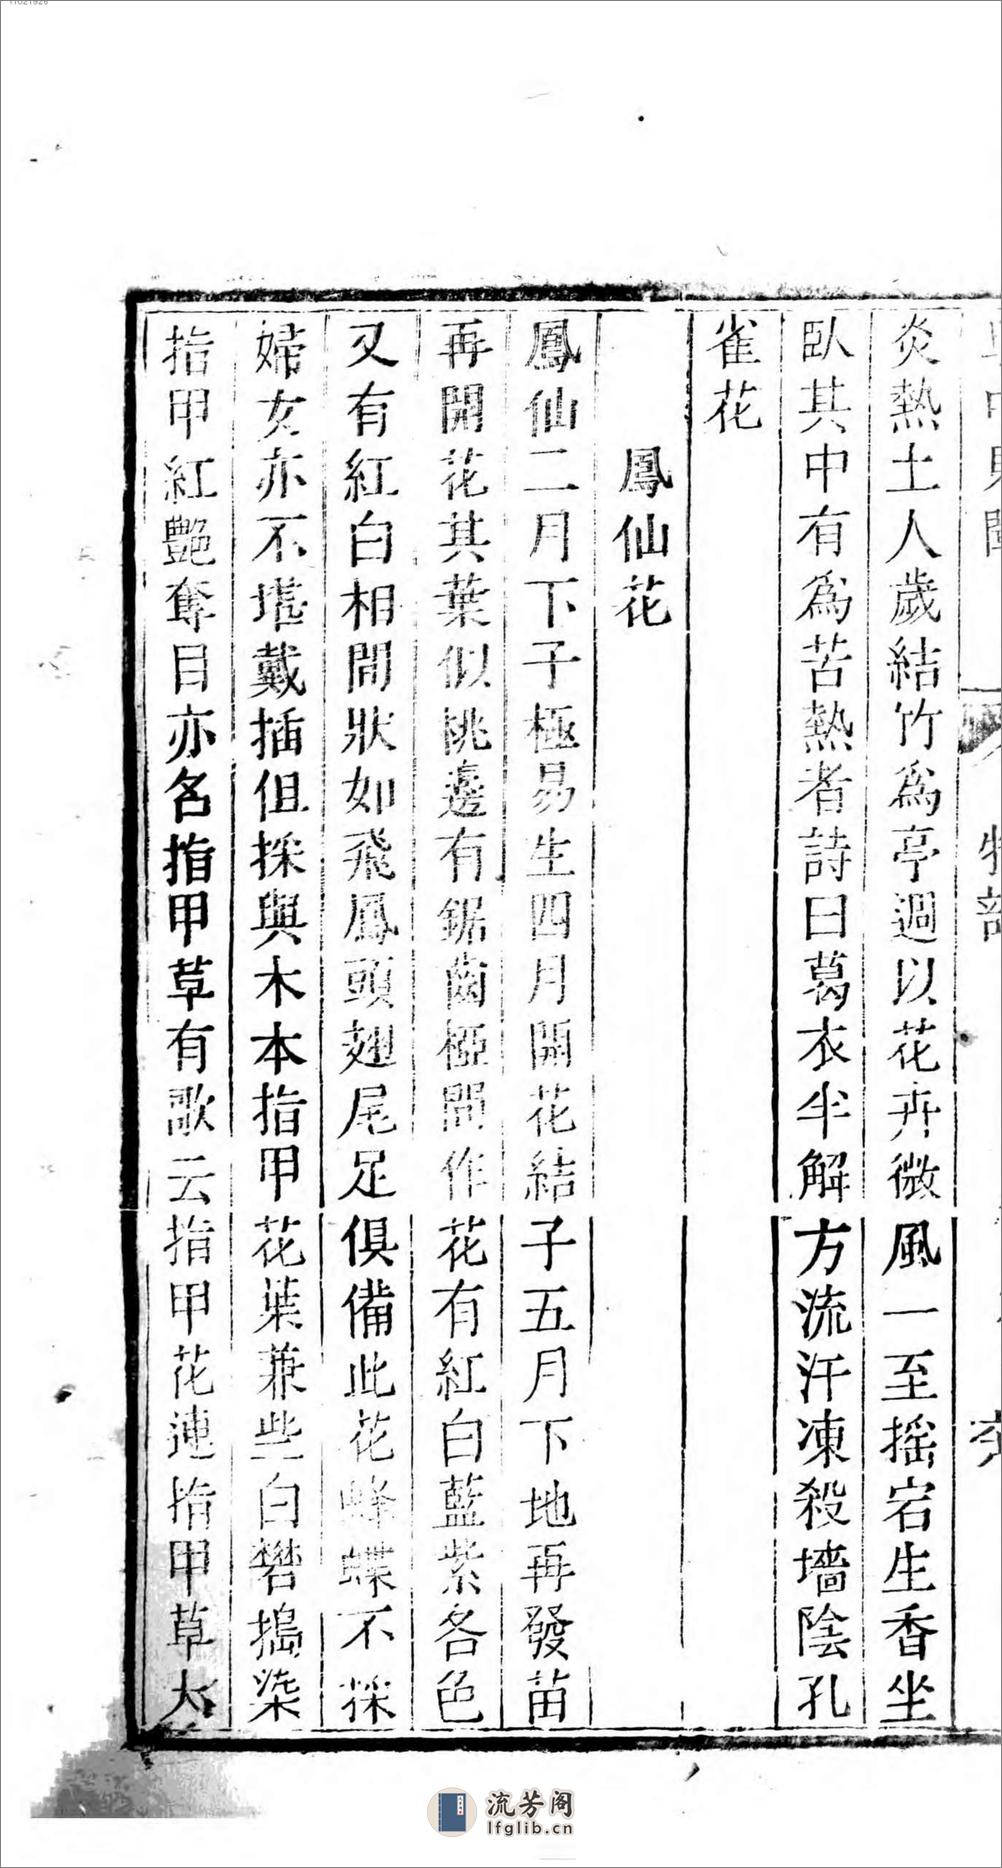 炎熱土人歲結竹為亭週以花卉微風一至搖宕生香坐
臥其中有為苦熱者詩曰葛衣半解方流汗凍殺墻陰孔
雀花
鳳仙花
鳳仙二月下子極易生四月開花結子五月下地再發苗
再開花其葉似桃邊有鋸齒椏間作花有紅白藍紫各色
又有紅白相間狀如飛鳳頭翅尾足俱備此花蜂蝶不採
婦女亦不堪戴插但採與木本指甲花葉兼些白礬搗染
指甲紅艷奪目亦名指甲草有歌云指甲花連指甲草大
流芳阁
lfglib.cn